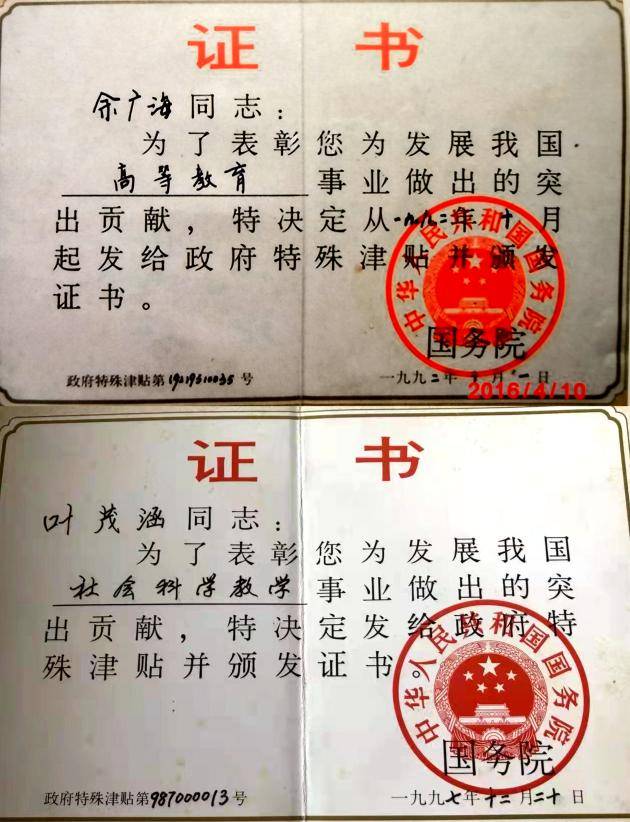 证书
余广海同志：
为了表彰您为发展我国
高等教育事业做出的突
出贡献，特决定从一九九二年十月
起发给政府特殊津贴并颁发
证书。
中华人民共和国国务院
国务院
政府特殊津贴第 号
一九九二年十月一日
2016/4/10
证书
叶茂涵同志：
为了表彰您为发展我国
社会科学教学事业做出的突
出贡献，特决定发给政府特
殊津贴并颁发证书。
中华人民共和国国务院
国务院
政府特殊津贴第987000013号
一九九七年十二月二十日